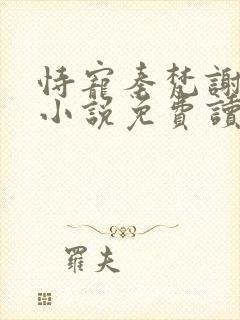 恃寵秦梵謝
小說免費讀
羅夫